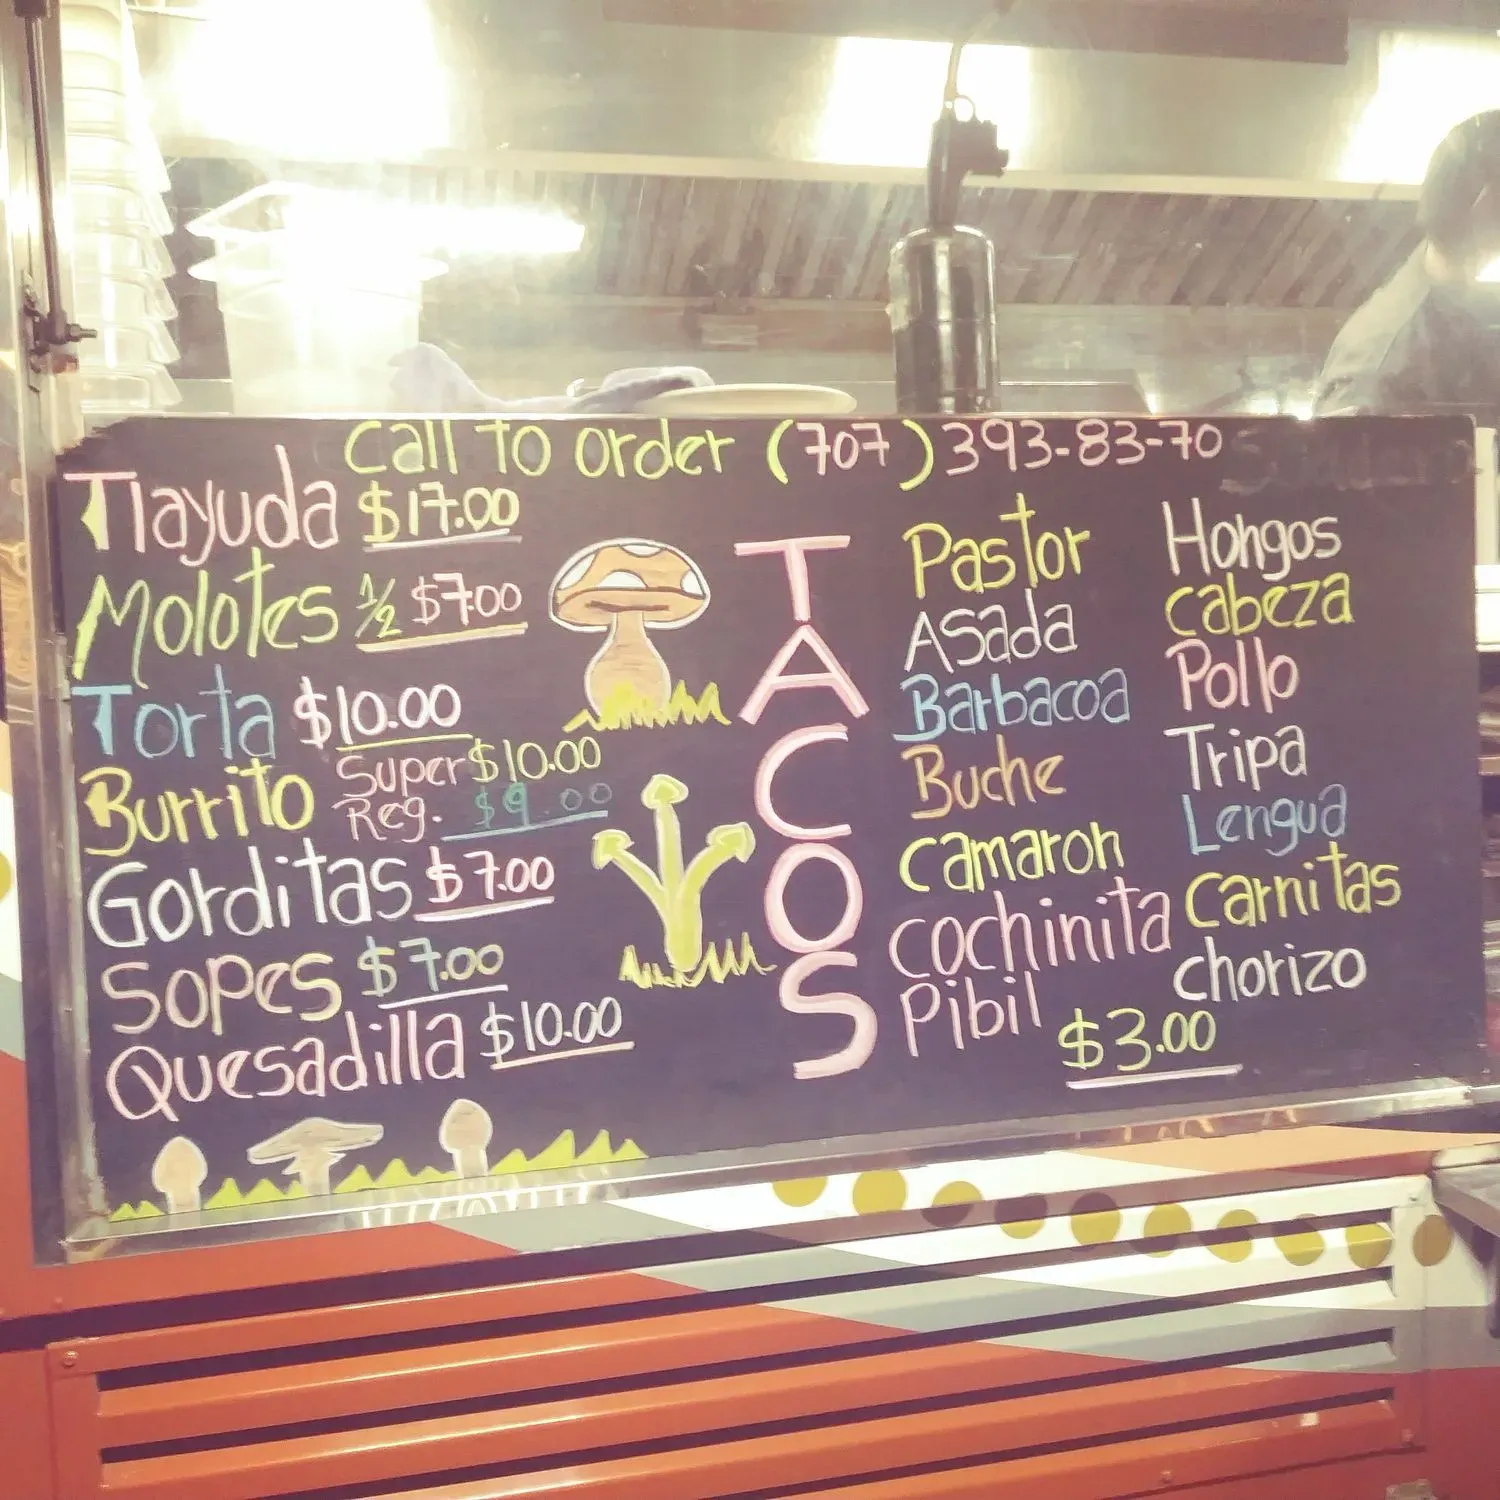 Call to order (707) 393-83-70
Tlayuda $17.00
Molotes 1/2 $7.00
Torta $10.00
Burrito Super $10.00
Reg. $9.00
Gorditas $7.00
Sopes $7.00
Quesadilla $10.00
TACOS
Pastor
Asada
Barbacoa
Buche
Camaron
Cochinita
Pibil
Hongos
Cabeza
Pollo
Tripa
Lengua
Carnitas
Chorizo
$3.00